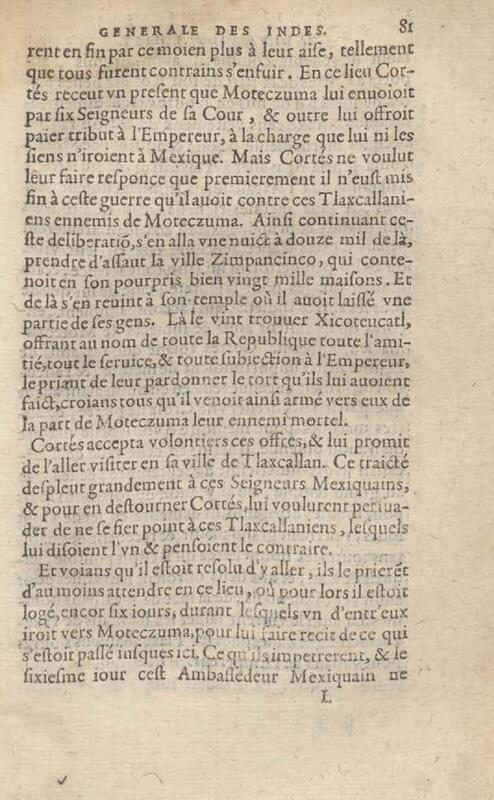 GENERALE DES INDES. 81
rent en fin par ce moien plus à leur aise, tellement
que tous furent contrains s'enfuir. En ce lieu Cor-
tés receut vn present que Moteczuma lui enuoioit
par six Seigneurs de sa Cour, & outre lui offroit
paier tribut à l'Empereur, à la charge que lui ni les
siens n'iroient à Mexique. Mais Cortés ne voulut
leur faire responce que premierement il n'eust mis
fin à ceste guerre qu'il auoit contre ces Tlaxcallani-
ens ennemis de Moteczuma. Ainsi continuant ce-
ste deliberatiõ, s'en alla vne nuict à douze mil de là,
prendre d'assaut la ville Zimpancinco, qui conte-
noit en son pourpris bien vingt mille maisons. Et
de là s'en reuint à son temple où il auoit laissé vne
partie de ses gens. Là le vint trouuer Xicotencatl,
offrant au nom de toute la Republique toute l'ami-
tié, tout le seruice, & toute subiection à l'Empereur,
le priant de leur pardonner le tort qu'ils lui auoient
faict, croians tous qu'il venoit ainsi armé vers eux de
la part de Moteczuma leur ennemi mortel.
Cortés accepta volontiers ces offres, & lui promit
de l'aller visiter en sa ville de Tlaxcallan. Ce traicté
despleut grandement à ces Seigneurs Mexiquains,
& pour en destourner Cortés, lui voulurent persua-
der de ne se fier point à ces Tlaxcallaniens, lesquels
lui disoient l'vn & pensoient le contraire.
Et voians qu'il estoit resolu d'y aller, ils le prierẽt
d'au moins attendre en ce lieu, où pour lors il estoit
logé, encor six iours, durant lesquels vn d'entr'eux
iroit vers Moteczuma, pour lui faire recit de ce qui
s'estoit passé iusques ici. Ce qu'ils impetrerent, & le
sixiesme iour cest Ambassedeur Mexiquain ne
L